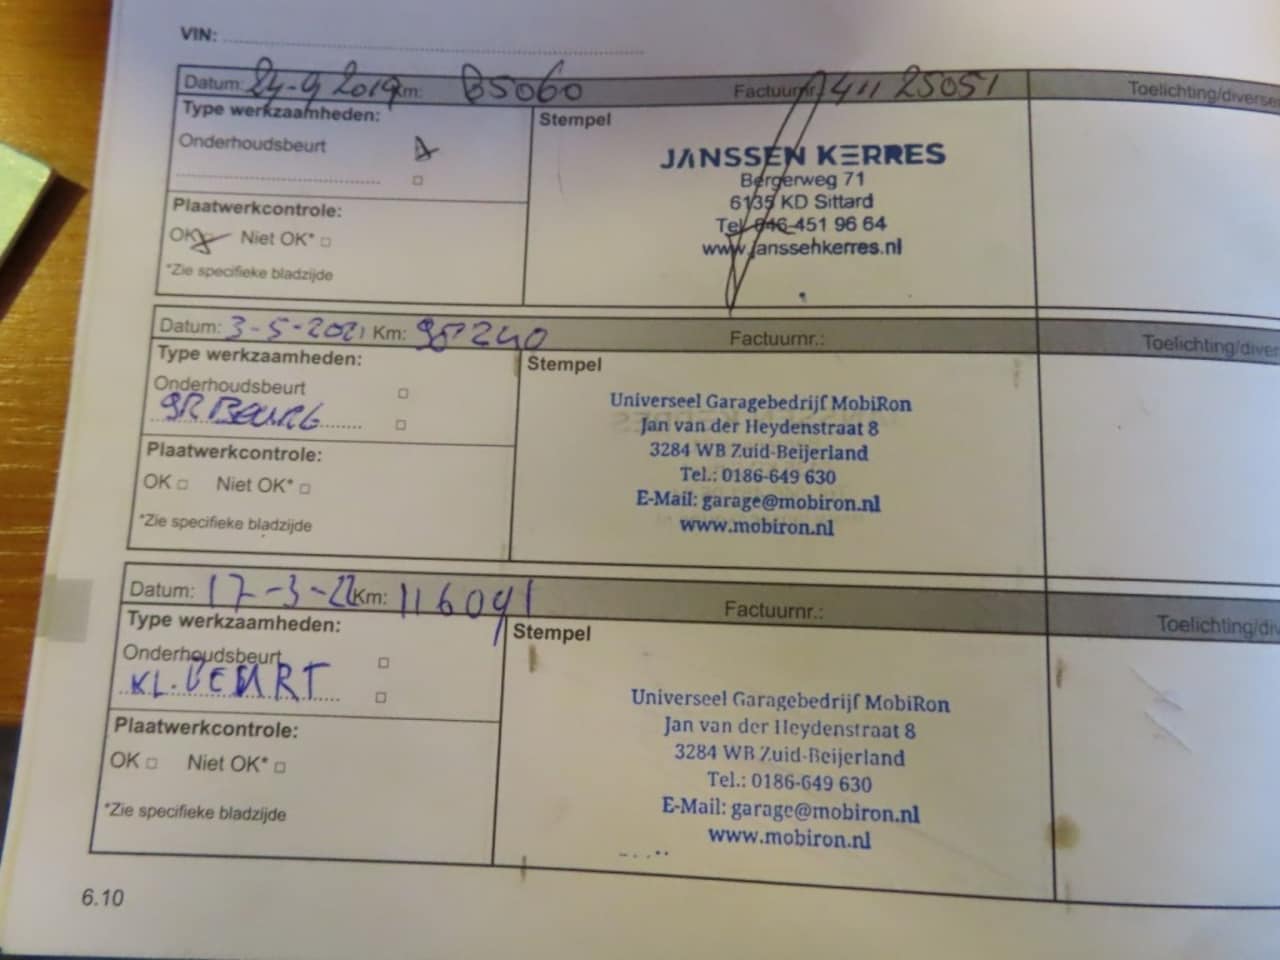 VIN:
Datum: 24-9 2019 Km: 85060 Factuurnr.: 7411 25051 Toelichting/diverse
Type werkzaamheden:
Stempel
Onderhoudsbeurt
JANSSEN KERRES
Bergerweg 71
6135 KD Sittard
Tel. 046-451 96 64
www.janssenkerres.nl
Plaatwerkcontrole:
OK Niet OK*
*Zie specifieke bladzijde
Datum: 3-5-2021 Km: 98240 Factuurnr.: Toelichting/diver
Type werkzaamheden:
Stempel
Onderhoudsbeurt
GR BEURT
Universeel Garagebedrijf MobiRon
Jan van der Heydenstraat 8
3284 WB Zuid-Beijerland
Tel.: 0186-649 630
E-Mail: garage@mobiron.nl
www.mobiron.nl
Plaatwerkcontrole:
OK Niet OK*
*Zie specifieke bladzijde
Datum: 17-3-22 Km: 116091 Factuurnr.: Toelichting/di
Type werkzaamheden:
Stempel
Onderhoudsbeurt
KL. BEURT
Universeel Garagebedrijf MobiRon
Jan van der Heydenstraat 8
3284 WB Zuid-Beijerland
Tel.: 0186-649 630
E-Mail: garage@mobiron.nl
www.mobiron.nl
Plaatwerkcontrole:
OK Niet OK*
*Zie specifieke bladzijde
6.10